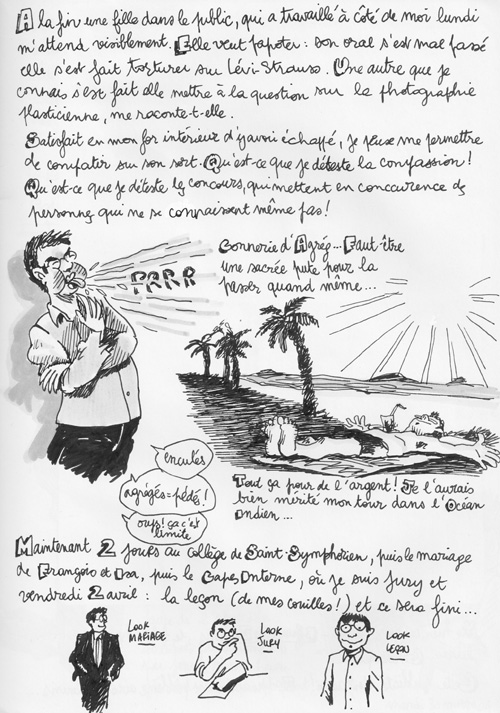 A la fin une fille dans le public, qui a travaillé à côté de moi lundi
m'attend visiblement. Elle veut papoter : son oral s'est mal passé
elle s'est fait torturer sur Lévi-Strauss. Une autre que je
connais s'est fait elle mettre à la question sur la photographie
plasticienne, me raconte-t-elle.
Satisfait en mon for intérieur d'y avoir échappé, je peux me permettre
de compatir sur son sort. Qu'est-ce que je déteste la compassion !
Qu'est-ce que je déteste les concours, qui mettent en concurence des
personnes qui ne se connaissent même pas !
Connerie d'Agrég... Faut être
une sacrée pute pour la
passer quand même...
PRRR
enculés
agrégés = pédés !
oups ! ça c'est
limite
Tout ça pour de l'argent ! Je l'aurais
bien mérité mon tour dans l'Océan
Indien...
Maintenant 2 jours au collège de Saint-Symphorien, puis le mariage
de François et Isa, puis le Capes Interne, où je suis Jury et
vendredi 2 avril : la leçon (de mes couilles !) et ce sera fini...
Look
MARIAGE
Look
JURY
Look
LEÇON